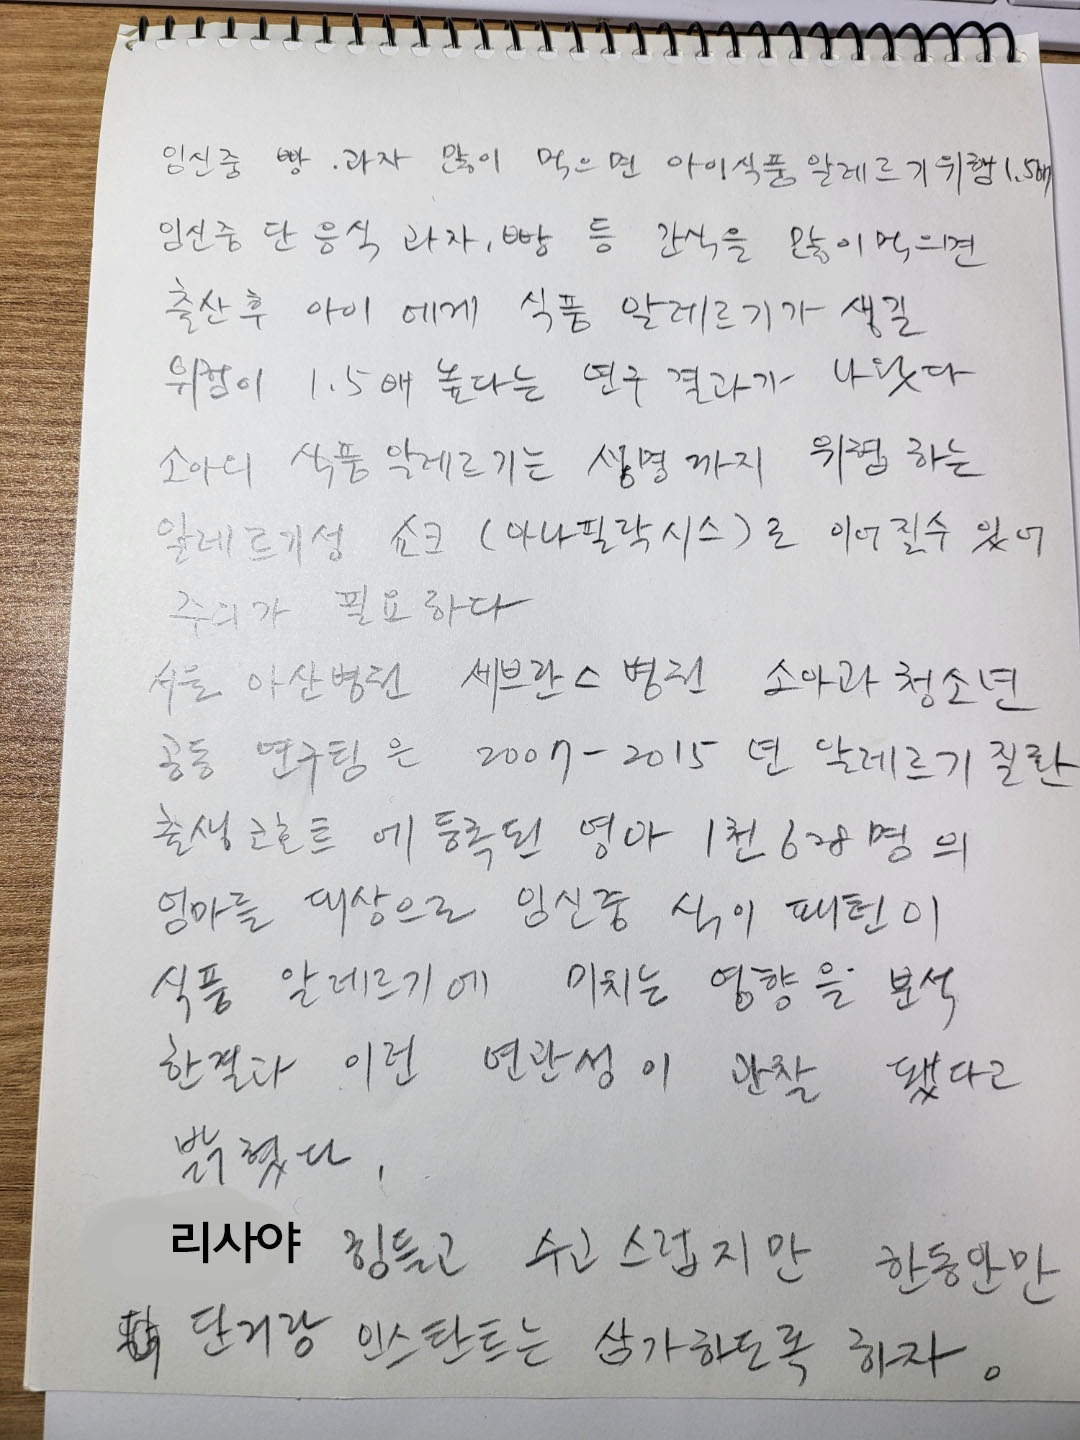 임신중 빵.과자 많이 먹으면 아이식품 알레르기위험1.5배
임신중 단 음식 과자,빵 등 간식을 많이먹으면
출산후 아이 에게 식품 알레르기가 생길
위험이 1.5배 높다는 연구 결과가 나왔다
소아의 식품 알레르기는 생명까지 위협하는
알레르기성 쇼크 (아나필락시스)로 이어질수 있어
주의가 필요하다
서울 아산병원 세브란스병원 소아과청소년
공동 연구팀은 2007-2015년 알레르기질환
출생코호트에 등록된 영아 1천628명의
엄마를 대상으로 임신중 식이 패턴이
식품 알레르기에 미치는 영향을 분석
한결과 이런 연관성이 관찰 됐다고
밝혔다.
리사야 힘들고 수고스럽지만 한동안만
단거랑 인스탄트는 삼가하도록 하자。